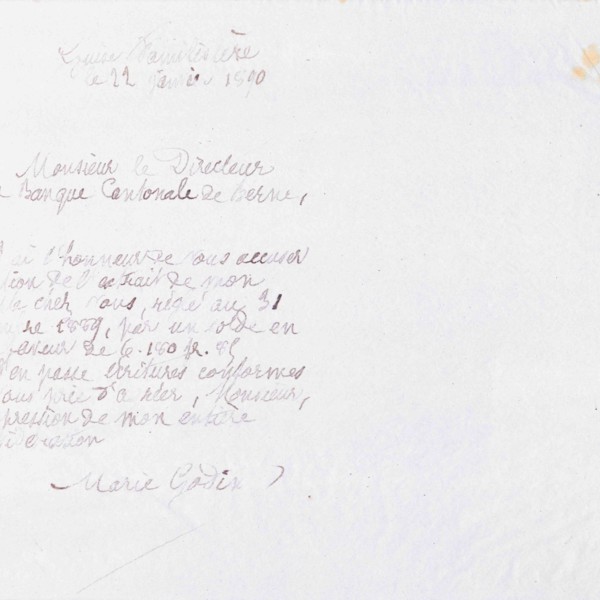 Guise Familistère
le 22 Janvier 1890
Monsieur le Directeur
Banque Cantonale de Berne,
ai l'honneur de vous accuser
tion de l'extrait de mon
chez vous, réglé au 31
bre 1889, par un solde en
faveur de 6.180 fr. 85
en passe écritures conformes
ous prie d'agréer, Monsieur,
pression de mon entière
sidération
Marie Godin